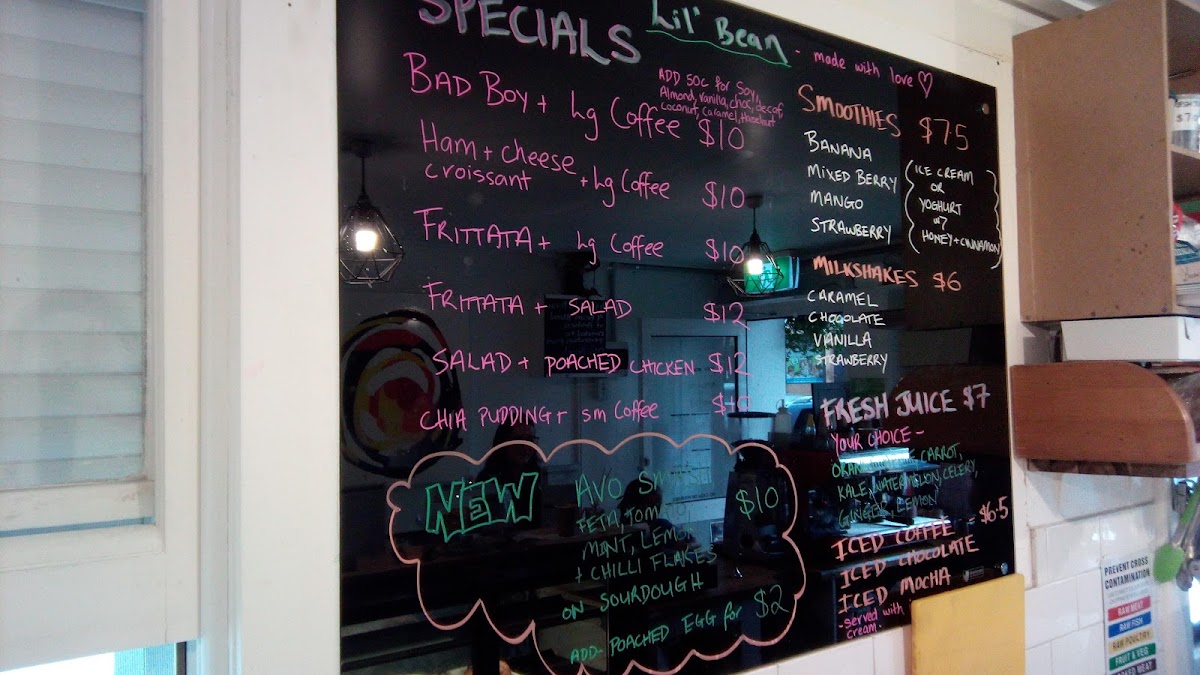 SPECIALS
Lil' Bean
- made with love ♡
BAD BOY + Lg Coffee $10
ADD 50c for Soy,
Almond, vanilla, choc, decaf,
coconut, caramel, Hazelnut
Ham + cheese
croissant + Lg Coffee $10
FRITTATA + Lg Coffee $10
FRITTATA + SALAD $12
SALAD + POACHED CHICKEN $12
CHIA PUDDING + sm Coffee $10
NEW
AVO
$10
FETA, TOMATO,
MINT, LEMON
+ CHILLI FLAKES
ON SOURDOUGH
ADD- POACHED EGG for $2
SMOOTHIES $7.5
BANANA
MIXED BERRY
MANGO
STRAWBERRY
(ICE CREAM
OR
YOGHURT
w/
HONEY + CINNAMON)
MILKSHAKES $6
CARAMEL
CHOCOLATE
VANILLA
STRAWBERRY
FRESH JUICE $7
YOUR CHOICE -
CARROT,
KALE, WATERMELON, CELERY,
GINGER, LEMON
ICED COFFEE - $6.5
ICED CHOCOLATE
ICED MOCHA
- served with
cream.
PREVENT CROSS
CONTAMINATION
RAW MEAT
RAW FISH
RAW POULTRY
FRUIT & VEG
COOKED MEAT